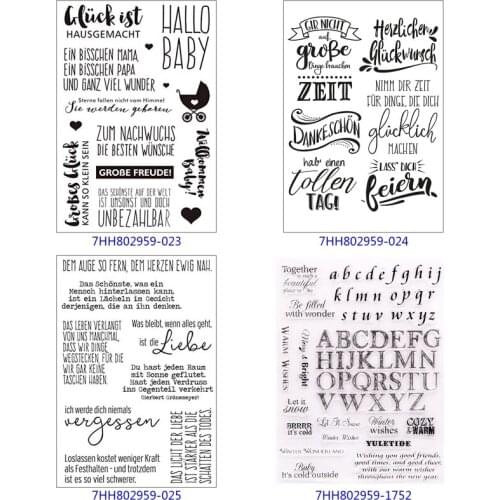 Glück ist
HAUSGEMACHT
EIN BISSCHEN MAMA,
EIN BISSCHEN PAPA
UND GANZ VIEL WUNDER
HALLO
BABY
Sterne fallen nicht vom Himmel
Sie werden geboren
Großes Glück
KANN SO KLEIN SEIN
ZUM NACHWUCHS
DIE BESTEN WÜNSCHE
GROẞE FREUDE!
DAS SCHÖNSTE AUF DER WELT
IST UMSONST UND DOCH
UNBEZAHLBAR
Willkommen
Baby!
7HH802959-023
GIB NICHT
auf
große
Dinge brauchen
ZEIT
DANKESCHÖN
hab' einen
tollen
TAG!
Herzlichen
Glückwunsch
NIMM DIR ZEIT
FÜR DINGE, DIE DICH
glücklich
MACHEN
LASS' DICH
feiern
7HH802959-024
DEM AUGE SO FERN, DEM HERZEN EWIG NAH.
Das Schönste, was ein
Mensch hinterlassen kann,
ist ein Lächeln im Gesicht
derjenigen, die an ihn denken.
DAS LEBEN VERLANGT
VON UNS MANCHMAL,
DASS WIR DINGE
WEGSTECKEN, FÜR DIE
WIR GAR KEINE
TASCHEN HABEN.
Was bleibt, wenn alles geht,
ist die Liebe
Du hast jeden Raum
mit Sonne geflutet.
Hast jeden Verdruss
ins Gegenteil verkehrt
(Herbert Grönemeyer)
ich werde dich niemals
vergessen
Loslassen kostet weniger Kraft
als Festhalten - und trotzdem
ist es so viel schwerer.
DAS LICHT DER LIEBE
IST STÄRKER ALS DIE
SCHATTEN DES TODES.
7HH802959-025
Together
is such a
beautiful
place to be
a b c d e f g h i j
k l m n o p q r
s t u v w x y z
Be filled
with wonder
WARM WISHES
Merry & Bright
ABCDEFG
HIJKLMN
OPQRSTU
VWXYZ
Let it
snow
BRRRR
it's cold
Let It Snow
Winter Wishes
Winter
wishes
COZY
& WARM
WINTER WONDERLAND
YULETIDE
Baby
It's cold outside
Wishing you good friends,
good times, and good cheer,
with our warmest thoughts
for a wonderful year
7HH802959-1752